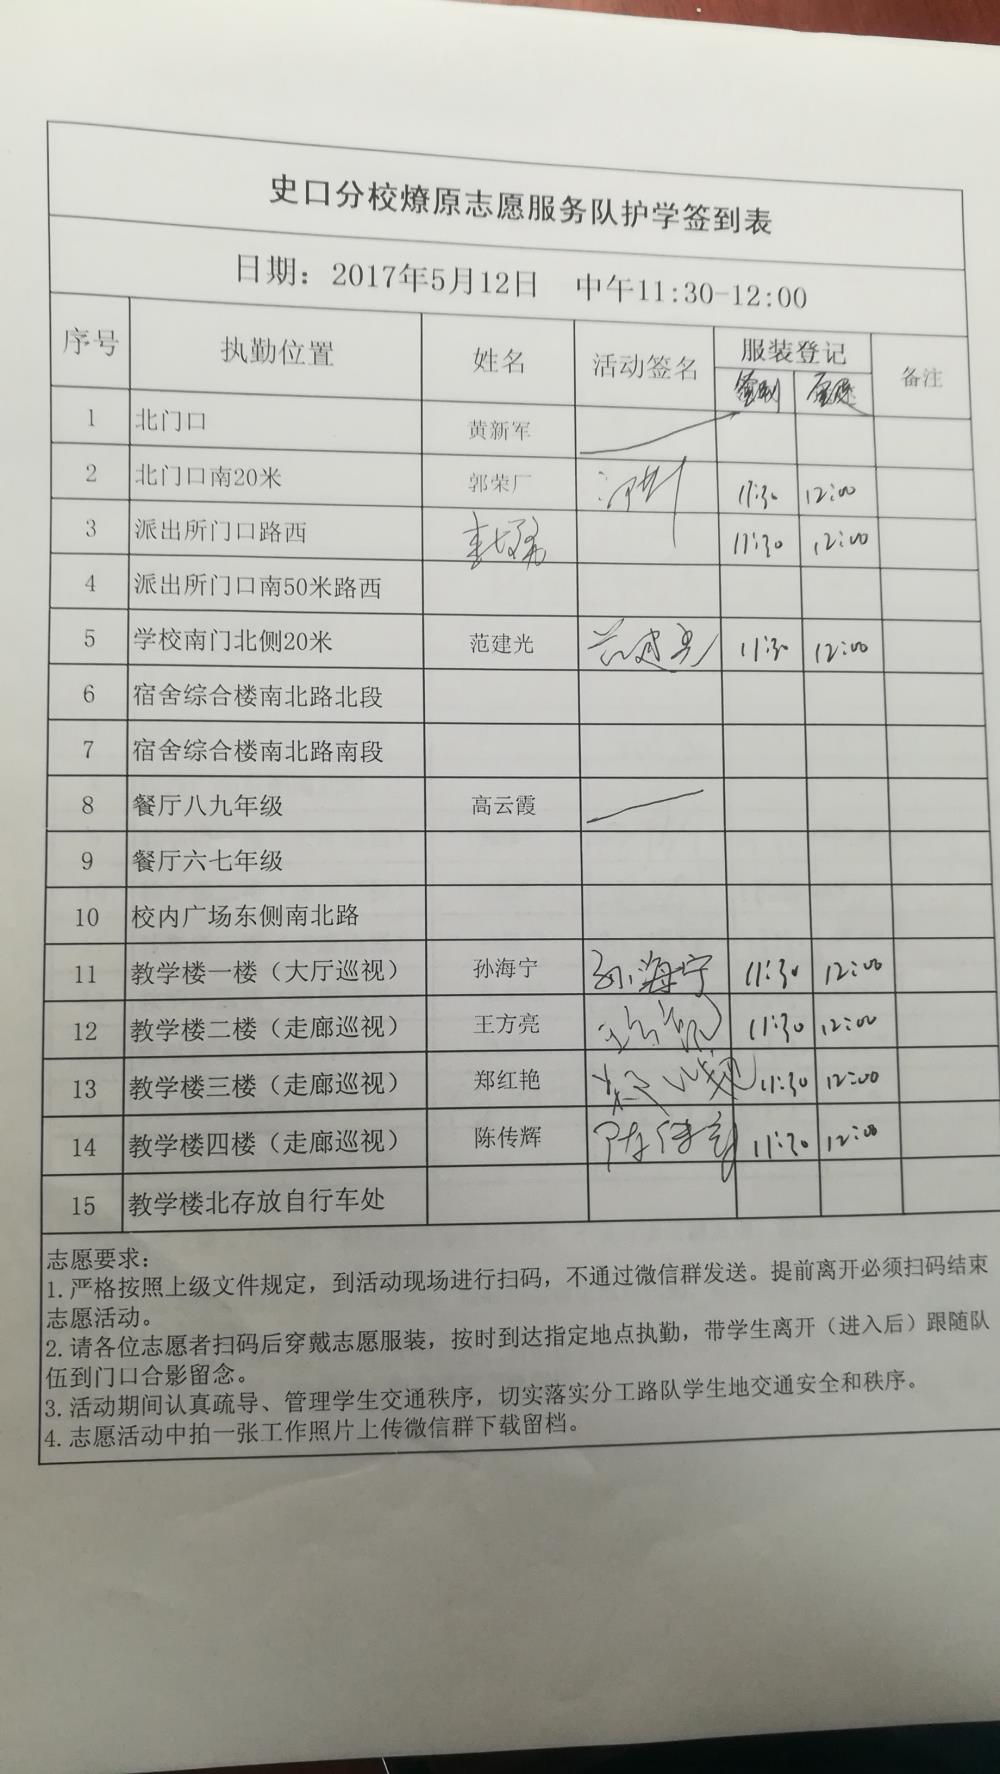 史口分校燎原志愿服务队护学签到表
日期：2017年5月12日 中午11:30-12:00
序号 执勤位置 姓名 活动签名 服装登记 备注
签到
1 北门口 黄新军
2 北门口南20米 郭荣厂 11:30 12:00
3 派出所门口路西 11:30 12:00
4 派出所门口南50米路西
5 学校南门北侧20米 范建光 范建光 11:30 12:00
6 宿舍综合楼南北路北段
7 宿舍综合楼南北路南段
8 餐厅八九年级 高云霞
9 餐厅六七年级
10 校内广场东侧南北路
11 教学楼一楼（大厅巡视） 孙海宁 孙海宁 11:30 12:00
12 教学楼二楼（走廊巡视） 王方亮 王方亮 11:30 12:00
13 教学楼三楼（走廊巡视） 郑红艳 郑红艳 11:30 12:00
14 教学楼四楼（走廊巡视） 陈传辉 陈传辉 11:30 12:00
15 教学楼北存放自行车处
志愿要求：
1.严格按照上级文件规定，到活动现场进行扫码，不通过微信群发送。提前离开必须扫码结束
志愿活动。
2.请各位志愿者扫码后穿戴志愿服装，按时到达指定地点执勤，带学生离开（进入后）跟随队
伍到门口合影留念。
3.活动期间认真疏导、管理学生交通秩序，切实落实分工路队学生地交通安全和秩序。
4.志愿活动中拍一张工作照片上传微信群下载留档。